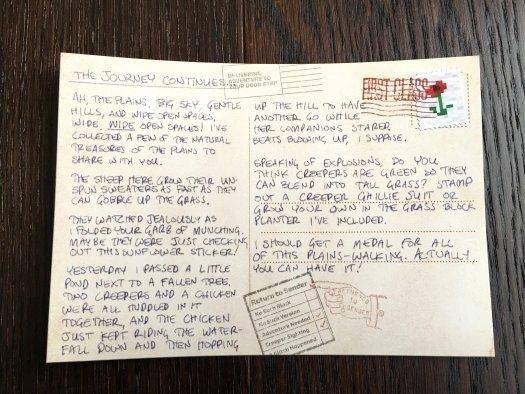 THE JOURNEY CONTINUES...
DELIVERING
ADVENTURE TO
YOUR DOOR STEP
FIRST CLASS
AH, THE PLAINS, BIG SKY, GENTLE
HILLS, AND WIDE OPEN SPACES,
WIDE, WIDE OPEN SPACES! I'VE
COLLECTED A FEW OF THE NATURAL
TREASURES OF THE PLAINS TO
SHARE WITH YOU.
THE SHEEP HERE GROW THEIR UN-
SPUN SWEATERS AS FAST AS THEY
CAN GOBBLE UP THE GRASS.
THEY WATCHED JEALOUSLY AS
I FOLDED YOUR GARB OF MUNCHING.
MAYBE THEY WERE JUST CHECKING
OUT THIS SUNFLOWER STICKER!
YESTERDAY I PASSED A LITTLE
POND NEXT TO A FALLEN TREE,
TWO CREEPERS AND A CHICKEN
WERE ALL HUDDLED IN IT
TOGETHER, AND THE CHICKEN
JUST KEPT RIDING THE WATER-
FALL DOWN AND THEN HOPPING
UP THE HILL TO HAVE
ANOTHER GO WHILE
HER COMPANIONS STARED.
BEATS BLOWING UP, I SUPPOSE.
SPEAKING OF EXPLOSIONS, DO YOU
THINK CREEPERS ARE GREEN SO THEY
CAN BLEND INTO TALL GRASS? STAMP
OUT A CREEPER GHILLIE SUIT OR
GROW YOUR OWN IN THE GRASS BLOCK
PLANTER I'VE INCLUDED.
I SHOULD GET A MEDAL FOR ALL
OF THIS PLAINS-WALKING. ACTUALLY,
YOU CAN HAVE IT!
Return to Sender
No Such Block
No Such Version
Adventure Needed
Creeper Sighting
Glitch Happened
RETURN
TO
SENDER